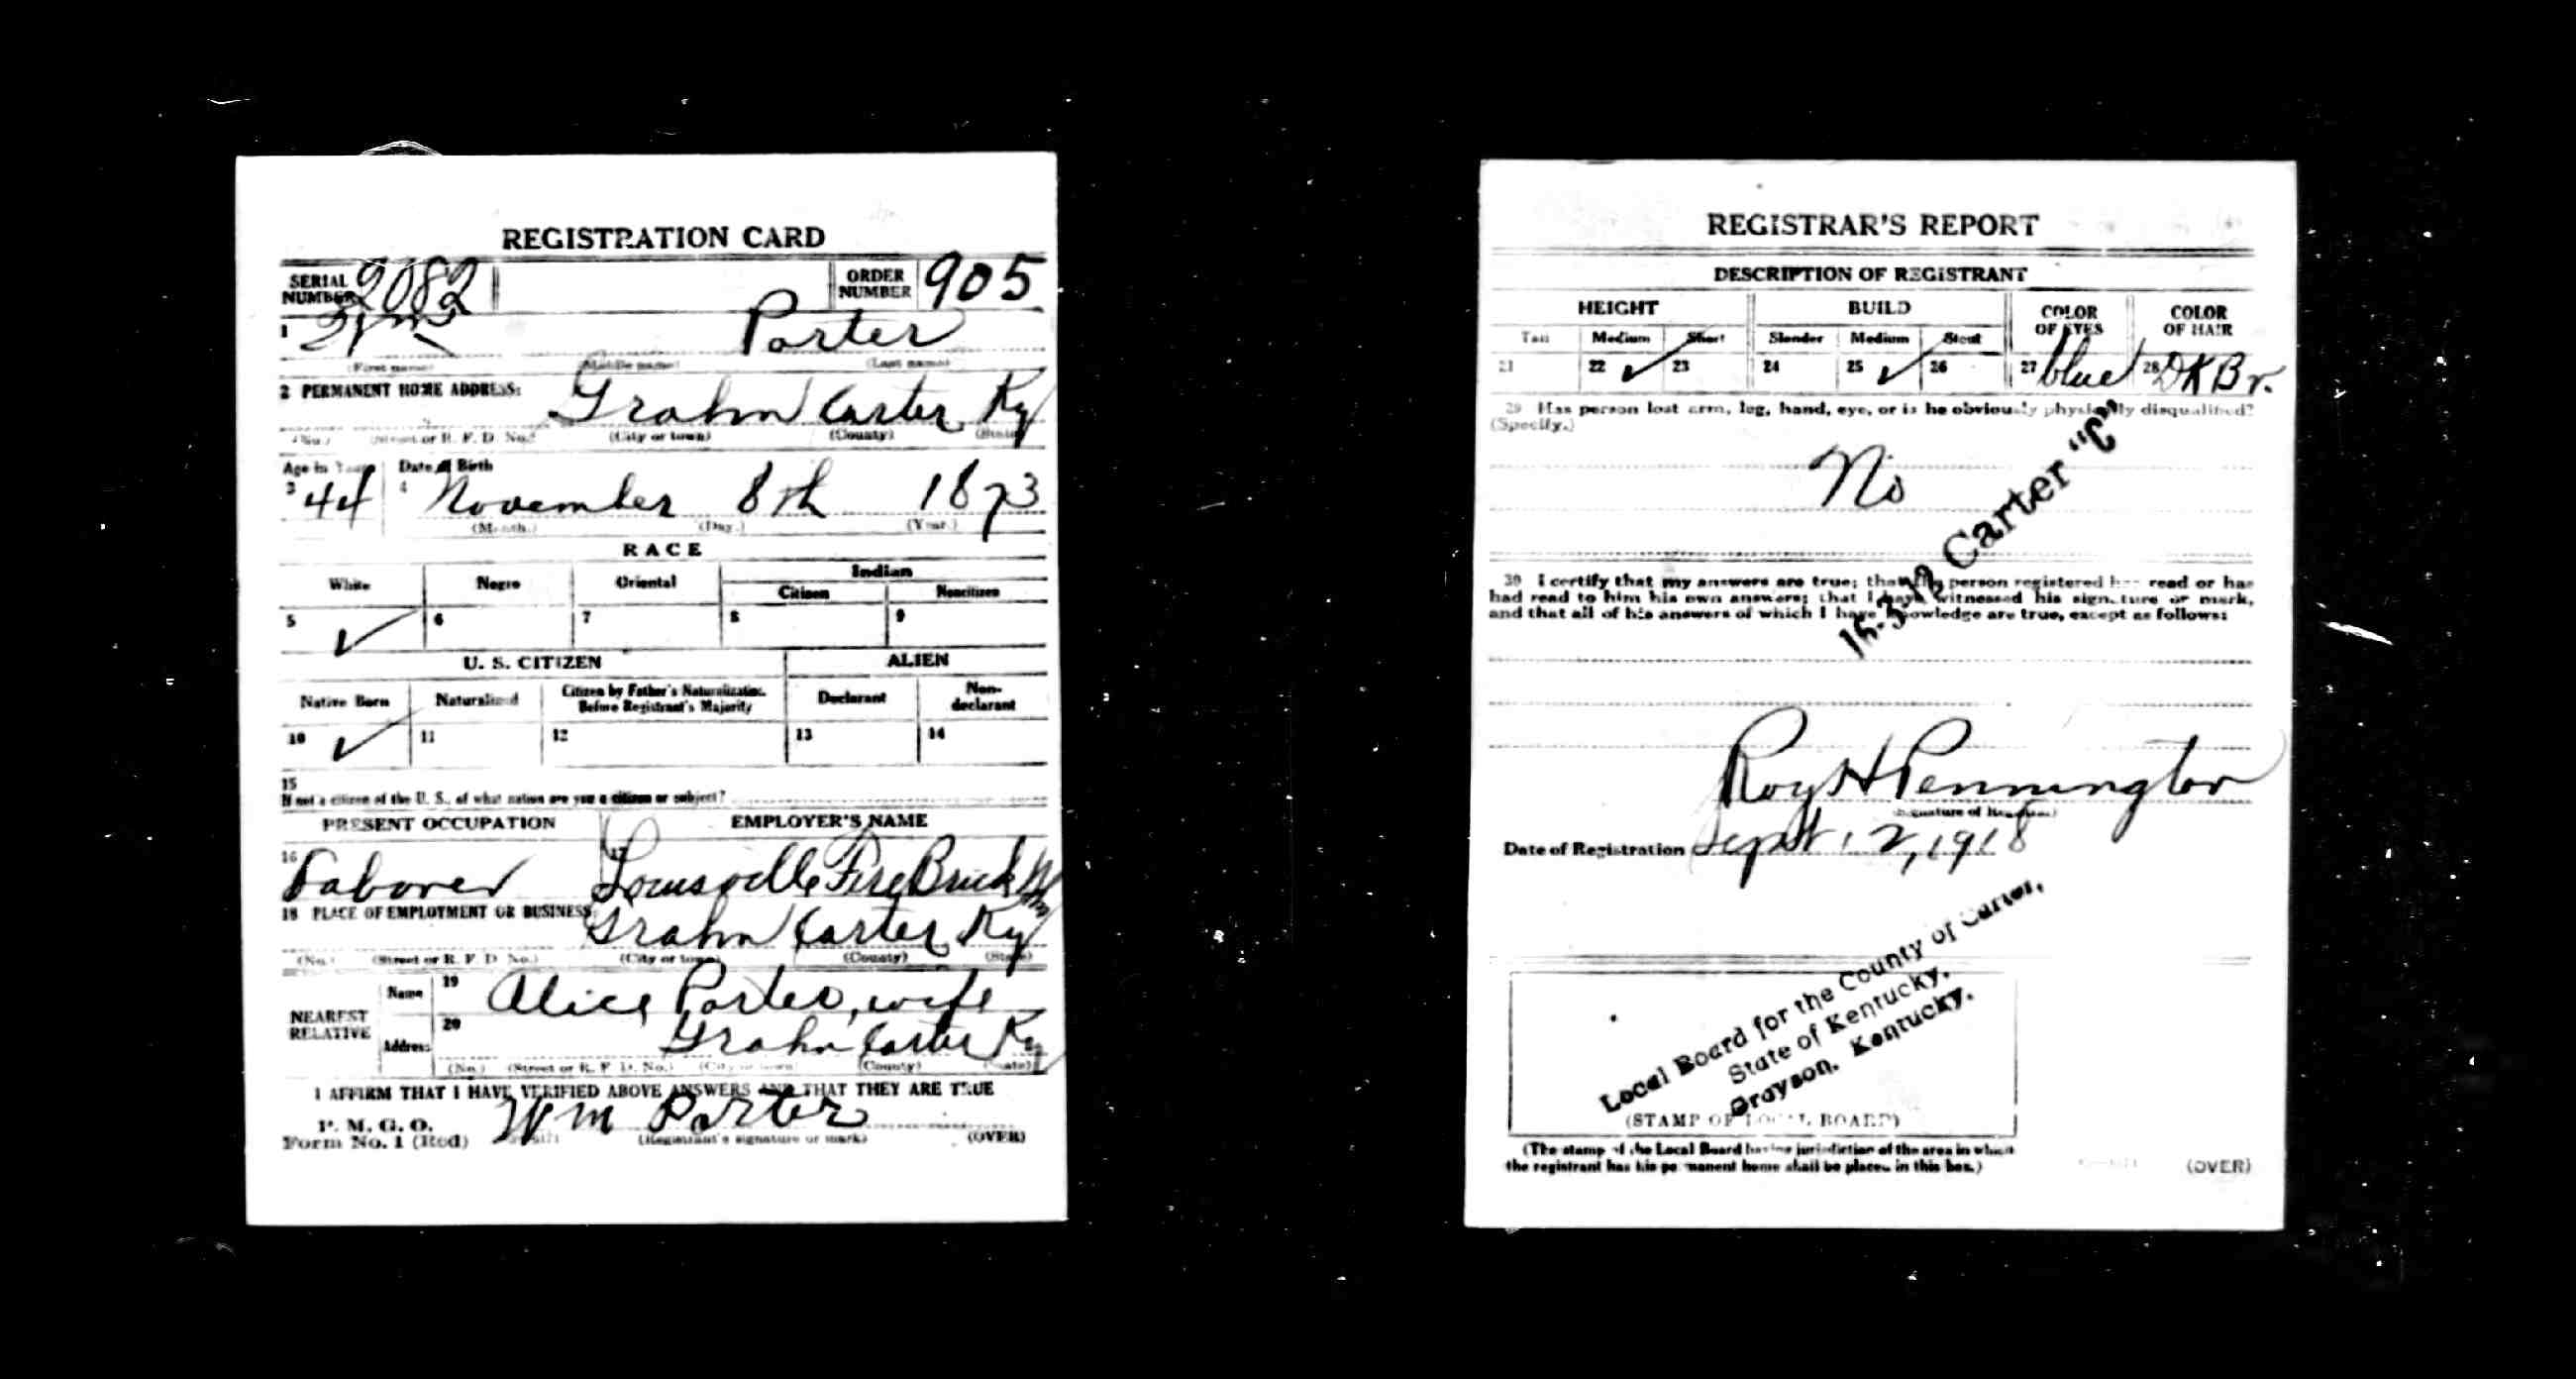 REGISTRATION CARD
SERIAL NUMBER 2082 ORDER NUMBER 905
1 Wm Porter
(First name) (Middle name) (Last name)
2 PERMANENT HOME ADDRESS:
Grahn Carter Ky
(No.) (Street or R. F. D. No.) (City or town) (County) (State)
Age in Years Date of Birth
3 44 4 November 8th 1873
(Month.) (Day.) (Year.)
RACE
White Negro Oriental Indian
Citizen Noncitizen
5 ✓ 6 7 8 9
U. S. CITIZEN ALIEN
Native Born Naturalized Citizen by Father's Naturalization Before Registrant's Majority Declarant Non-declarant
10 ✓ 11 12 13 14
15
If not a citizen of the U. S., of what nation are you a citizen or subject?
PRESENT OCCUPATION EMPLOYER'S NAME
16 Laborer 17 Louisville Fire Brick
18 PLACE OF EMPLOYMENT OR BUSINESS:
Grahn Carter Ky
(No.) (Street or R. F. D. No.) (City or town) (County) (State)
NEAREST RELATIVE
Name 19 Alice Porter, wife
Address 20 Grahn Carter Ky
(No.) (Street or R. F. D. No.) (City or town) (County) (State)
I AFFIRM THAT I HAVE VERIFIED ABOVE ANSWERS AND THAT THEY ARE TRUE
P. M. G. O.
Form No. 1 (Red) Wm Porter
(Registrant's signature or mark) (OVER)
REGISTRAR'S REPORT
DESCRIPTION OF REGISTRANT
HEIGHT BUILD COLOR OF EYES COLOR OF HAIR
Tall Medium Short Slender Medium Stout
21 22 ✓ 23 24 25 ✓ 26 27 blue 28 DK Br.
29 Has person lost arm, leg, hand, eye, or is he obviously physically disqualified?
(Specify.)
No
16-3-12 Carter "C"
30 I certify that my answers are true; that the person registered has read or has
had read to him his own answers; that I have witnessed his signature or mark,
and that all of his answers of which I have knowledge are true, except as follows:
Roy H Pennington
(Signature of Registrar)
Date of Registration Sept 12, 1918
Local Board for the County of Carter,
State of Kentucky,
Grayson, Kentucky.
(STAMP OF LOCAL BOARD)
(The stamp of the Local Board having jurisdiction of the area in which
the registrant has his permanent home shall be placed in this box.)
(OVER)